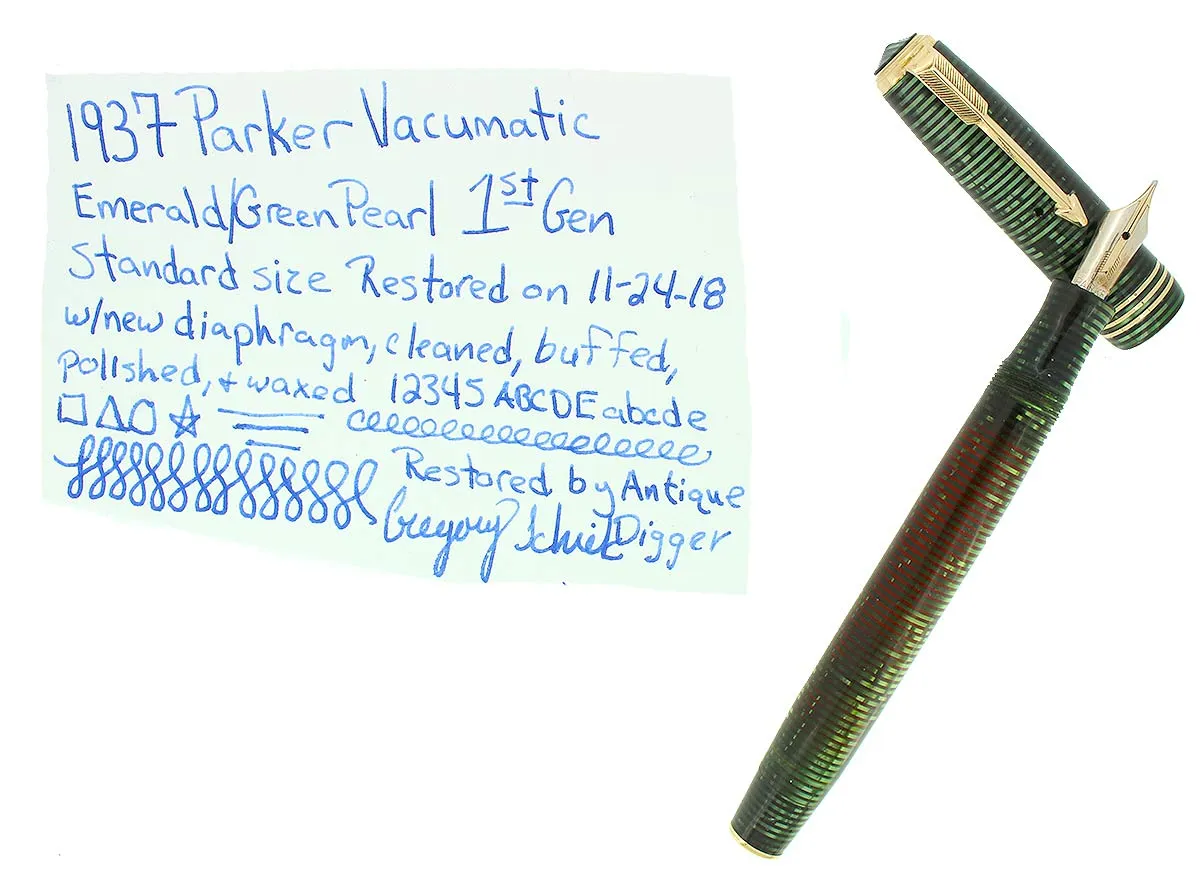 1937 Parker Vacumatic
Emerald/Green Pearl 1st Gen
Standard size Restored on 11-24-18
w/new diaphragm, cleaned, buffed,
polished, + waxed 12345 ABCDE abcde
Restored by Antique
Gregory Digger